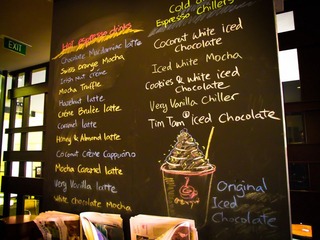 EXIT
Hot espresso drinks
Chocolate Macadamia latte
Swiss Orange Mocha
Irish nut crème
Mocha Truffle
Hazelnut latte
Crème Brulée latte
Caramel latte
Honey & Almond latte
Coconut Crème Cappuccino
Mocha Caramel latte
Very Vanilla latte
White chocolate Mocha
Cold
Espresso Chillers
Coconut White iced
Chocolate
Iced White Mocha
Cookies & white iced
Chocolate
Very Vanilla Chiller
Tim Tam iced Chocolate
Original
Iced
Chocolate